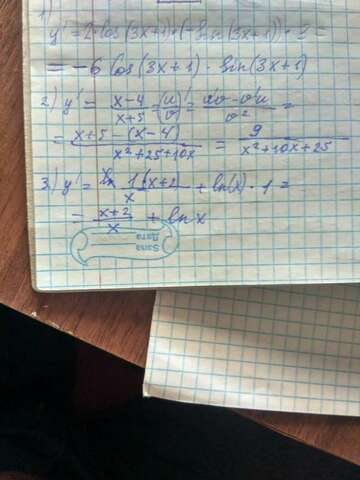 1)
y' = 2·cos(3x+1)·(-sin(3x+1))·3 =
= -6 cos(3x+1)·sin(3x+1)
2) y' = \frac{x-4}{x+5} (\frac{u}{v})' = \frac{u'v - v'u}{v^2} =
= \frac{x+5-(x-4)}{x^2+25+10x} = \frac{9}{x^2+10x+25}
3) y' = \frac{1·(x+2)}{x} + ln(x)·1 =
= \frac{x+2}{x} + ln x